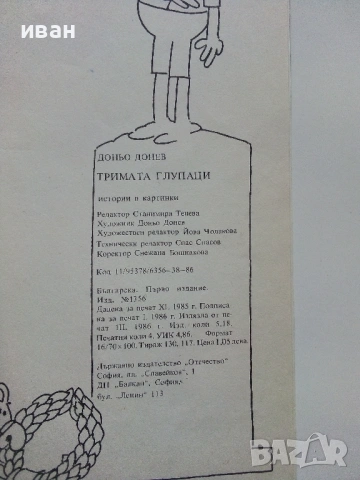 иван
ДОНЬО ДОНЕВ
ТРИМАТА ГЛУПАЦИ
истории в картинки
Редактор Станимира Тенева
Художник Доньо Донев
Художествен редактор Йова Чолакова
Технически редактор Спас Спасов
Коректор Снежана Бошнакова
Код 11/95378/6356—38—86
Българска. Първо издание.
Изд. №1356
Дадена за печат XI. 1985 г. Подписа-
на за печат I. 1986 г. Излязла от пе-
чат III. 1986 г. Изд. коли 5,18.
Печатни коли 4. УИК 4,86. Формат
16/70×100. Тираж 130, 117. Цена 1,05 лева.
Държавно издателство „Отечество“
София, пл. „Славейков“ 1
ДП „Балкан“, София,
бул. „Ленин“ 113
BAZAR